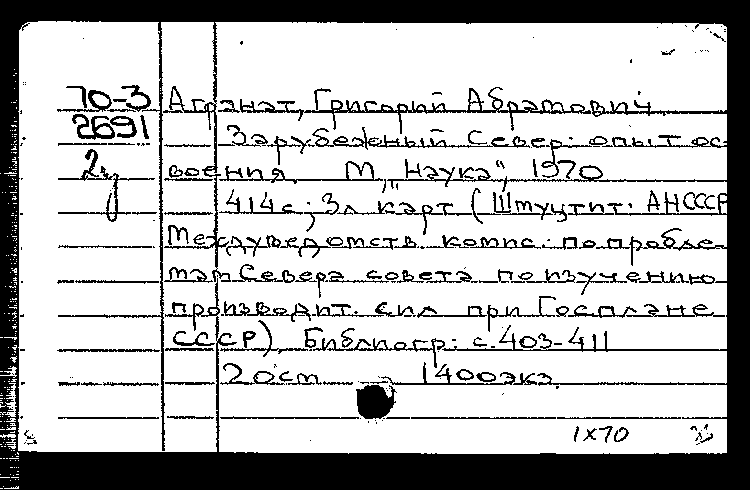 70-3 Агранат, Григорий Абрамович
2691 Зарубежный Север: опыт ос-
воения. М., "Наука", 1970
414с; 3л карт (Штуцтит: АНСССР
Междуведомств. комис. по пробле-
мам Севера совета по изучению
производит. сил при Госплане
СССР). Библиогр: с.403-411
20см 1400экз.
1X70